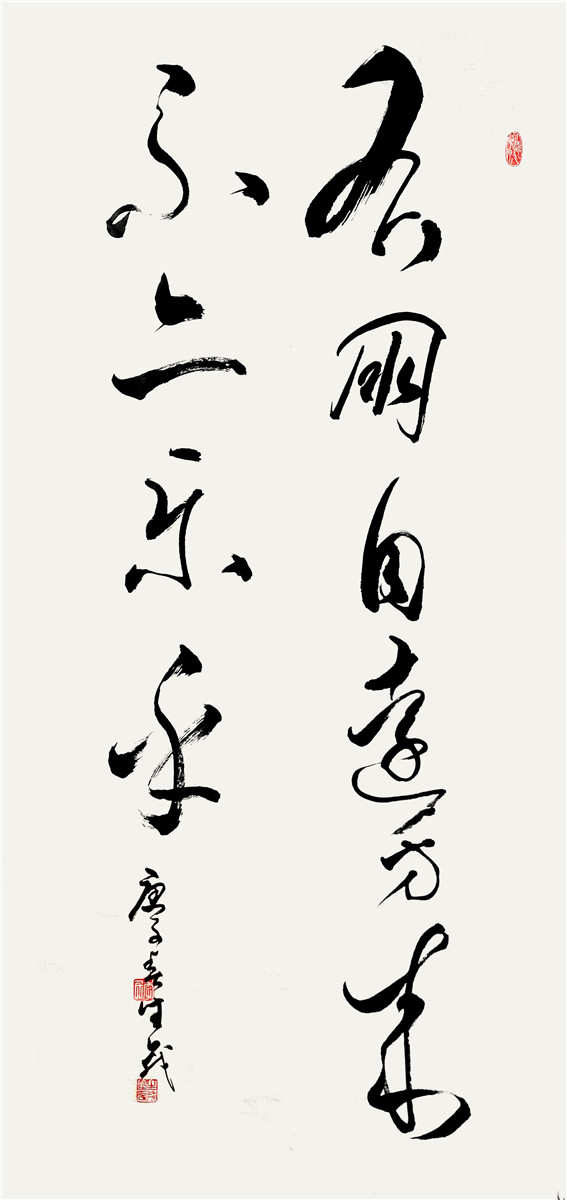 有朋自遠方来
不亦乐乎
庚子春